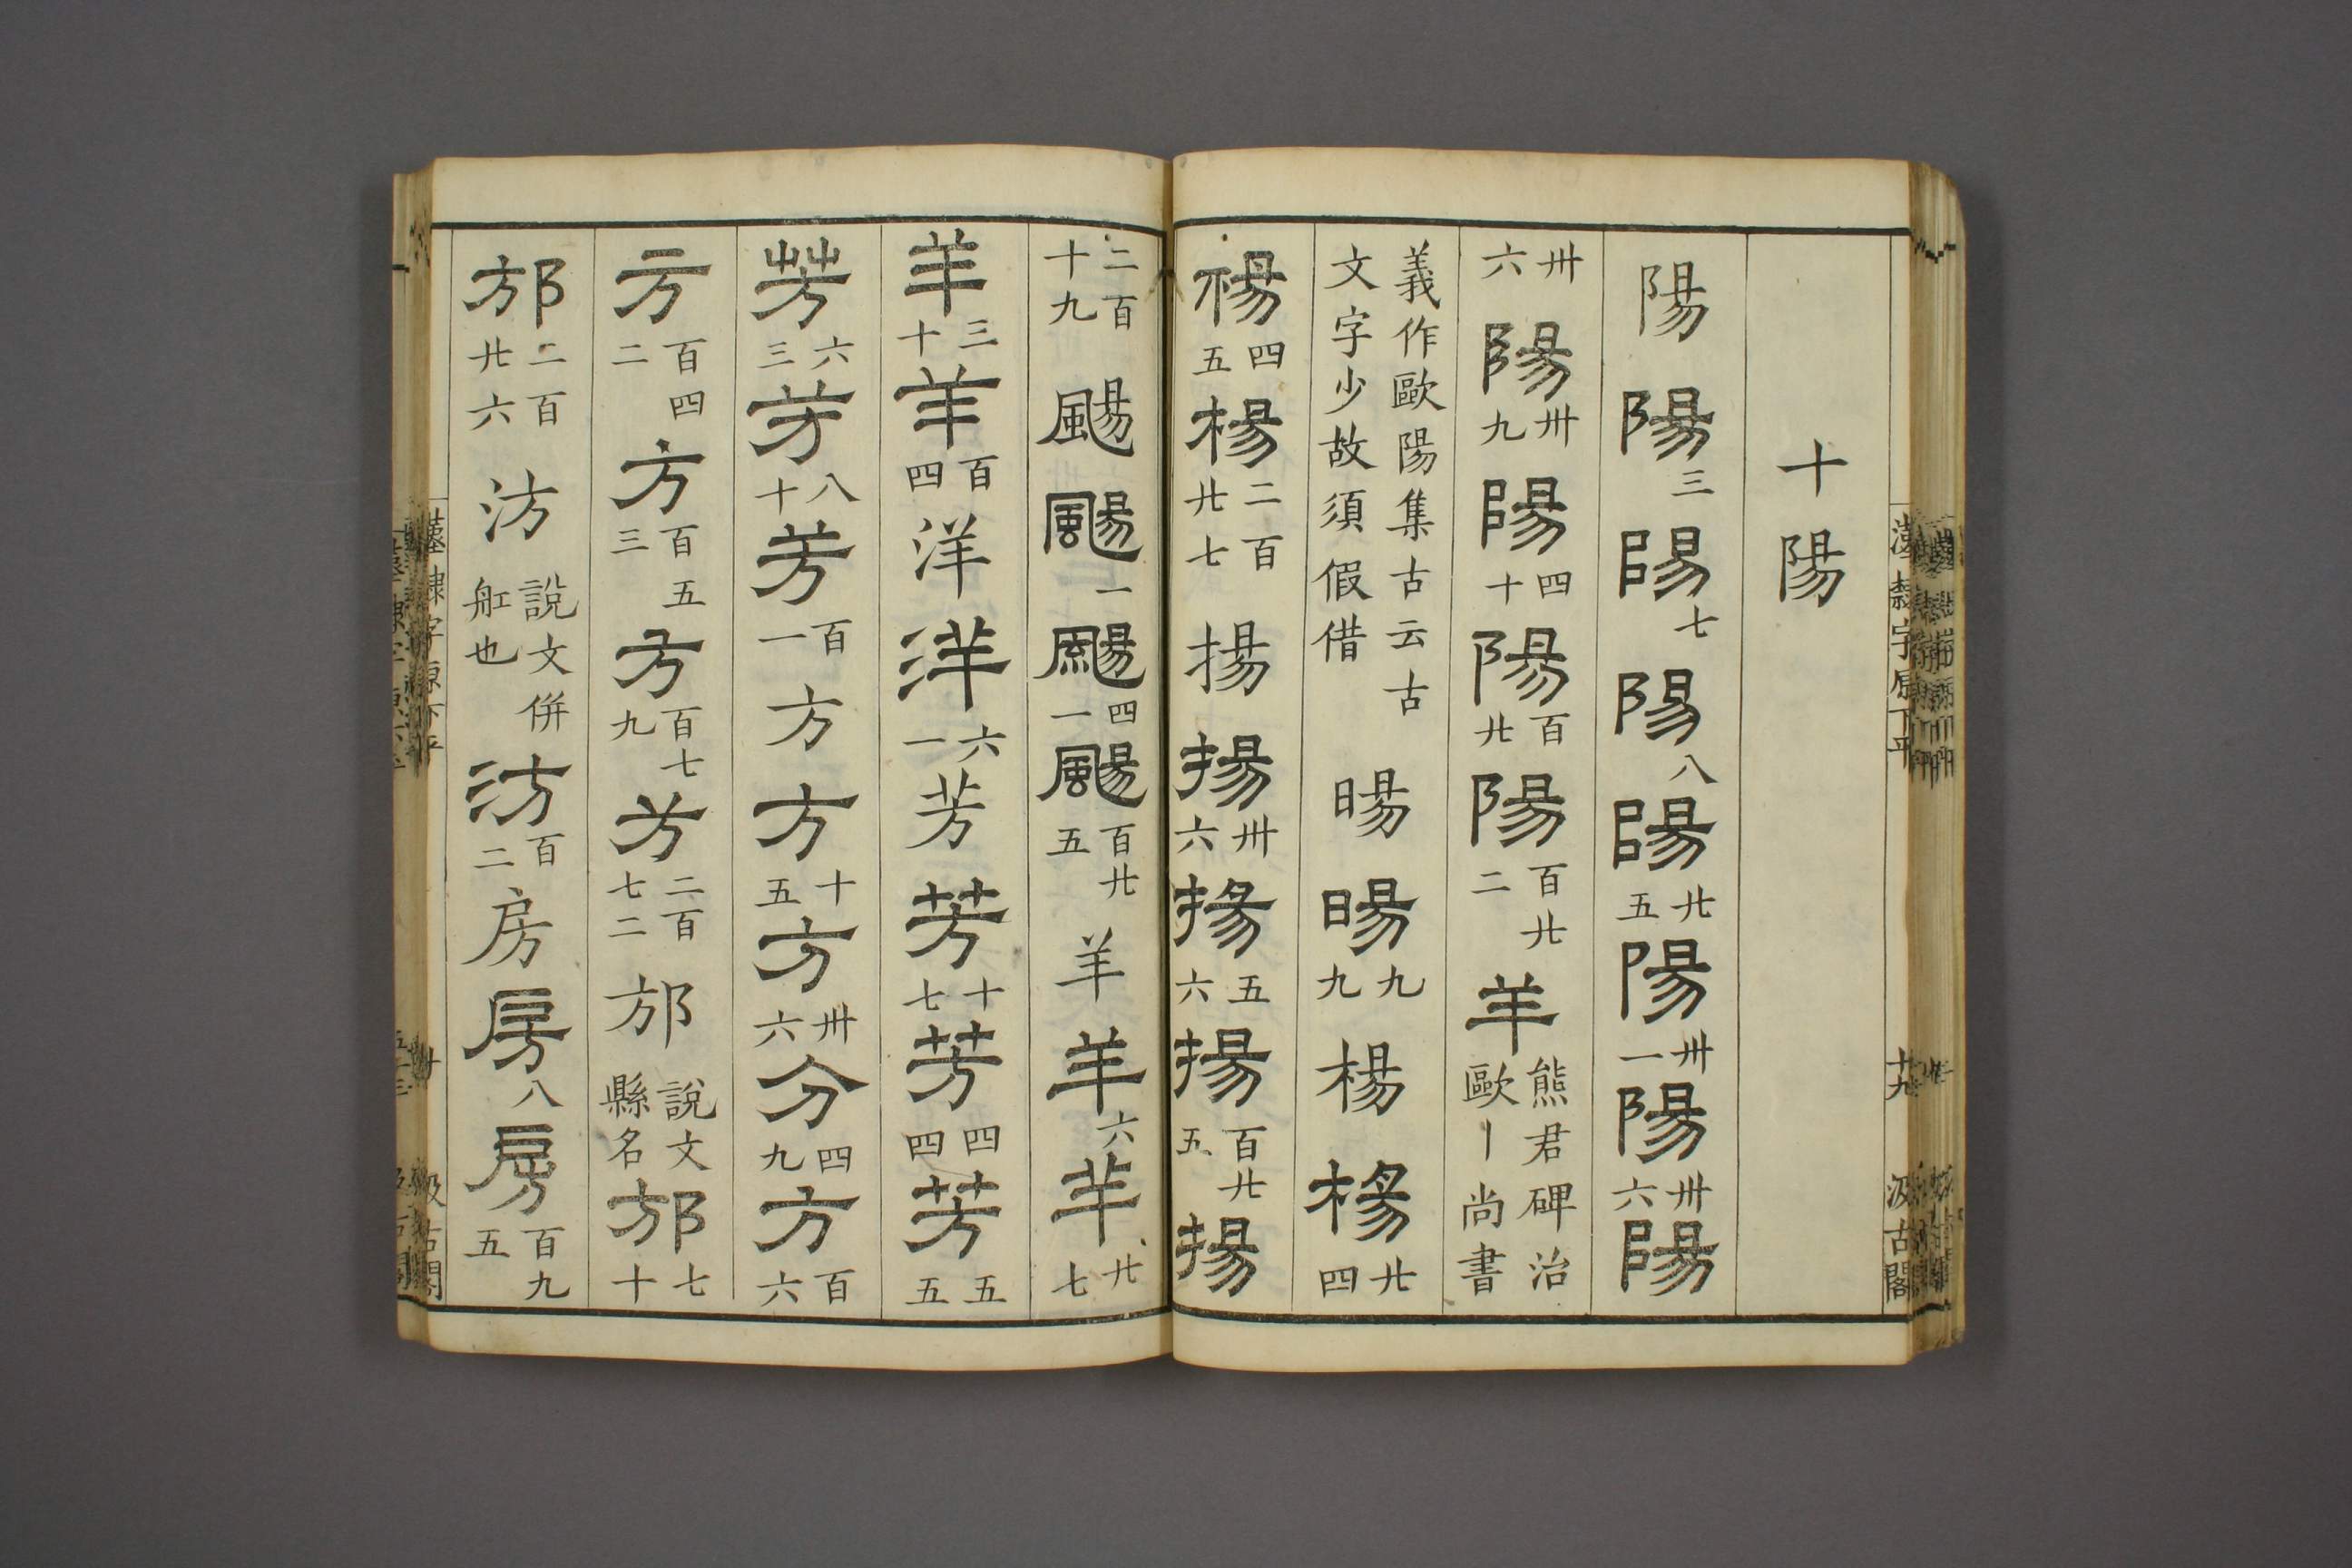 漢隸字原下平 十九 汲古閣
十陽
陽陽三陽七陽八陽廿五陽卅一陽卅六陽
卅六陽卅九陽四十陽百廿陽百廿二羊熊君碑治歐丨尚書
義作歐陽集古云古文字少故須假借暘暘九九楊楊廿四
楊四五楊二百廿七揚揚卅六揚五六揚百廿五揚
二百十九颺颺一颺四一颺百廿五羊羊六羊廿七
羊三十羊百四洋洋六一芳芳十七芳四四芳五五
芳六三芳八十芳百一方方十五方卅六方四九方百六
方百四二方百五三方百七九方二百七二邡說文縣名邡七十
邡二百廿六汸說文併舡也汸百二房房八房百九五
漢隸字源下平 廿 汲古閣